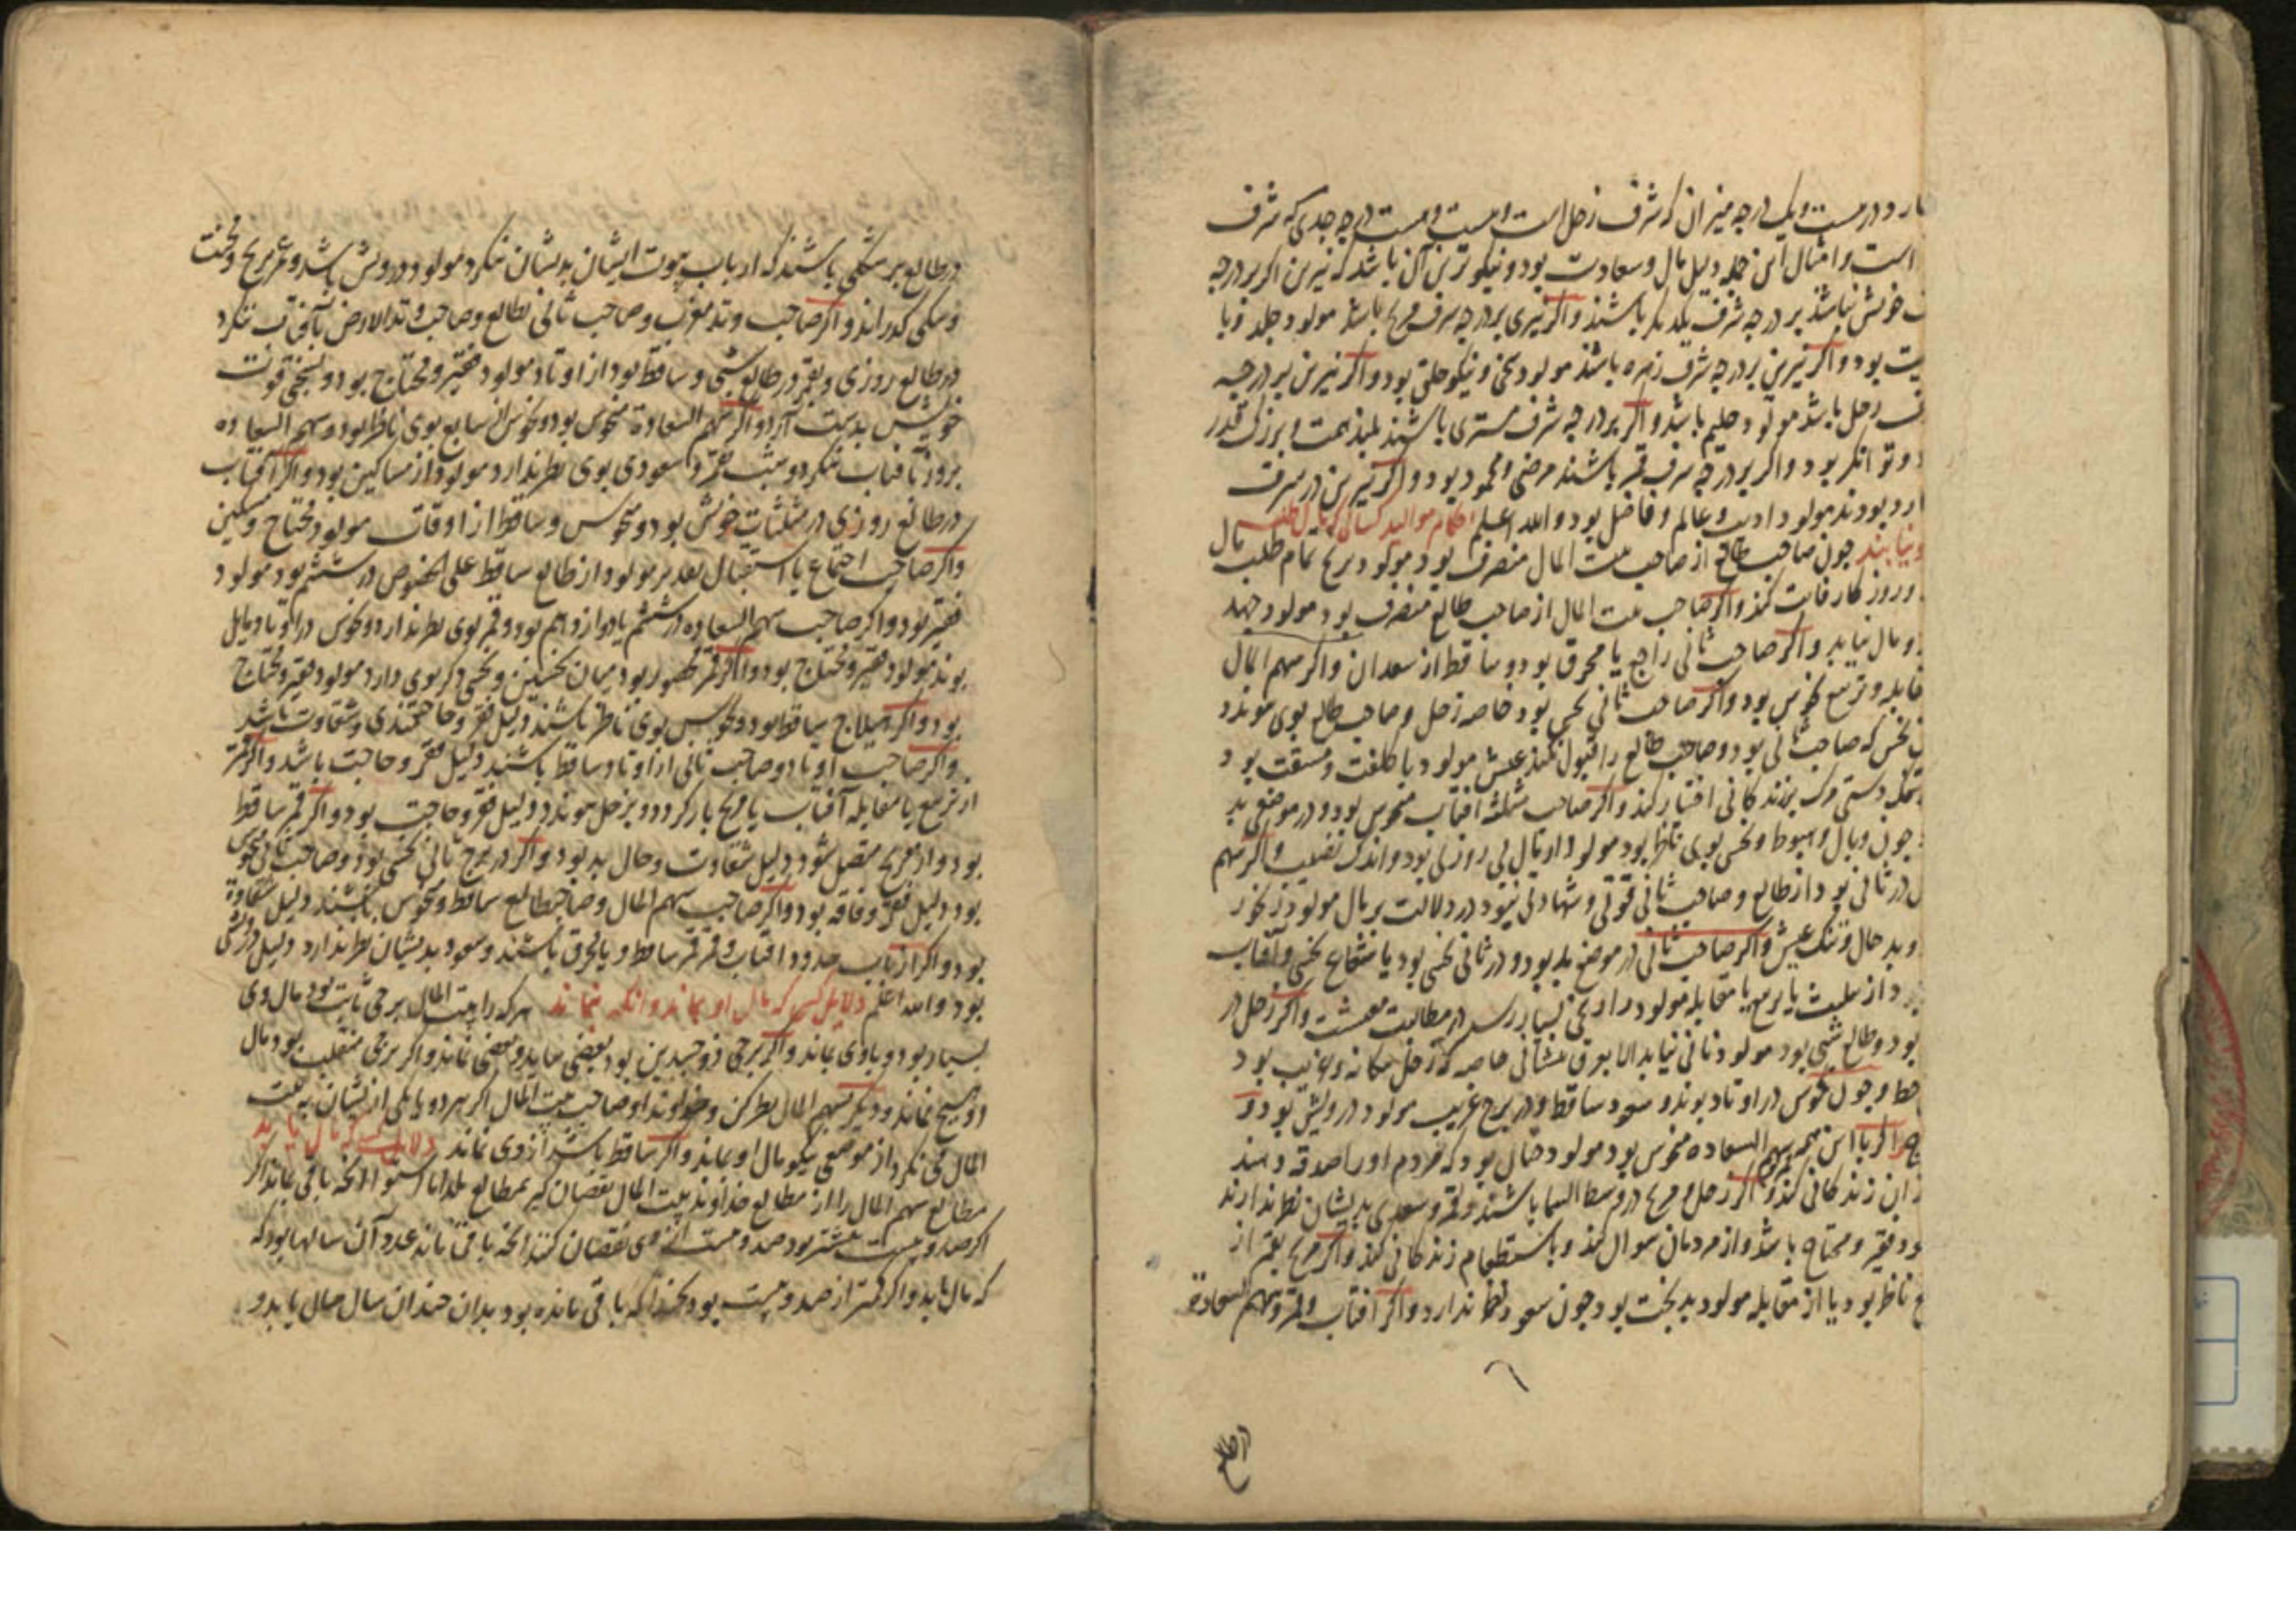 در بیست و یک درجه میزان که شرف زحل است و بیست و هشت درجه جدی که شرف
است و امثال این جمله دلیل مال و سعادت بود و نیکوترین آن باشد که نیرین اگر بر درجه
خویش نباشند بر درجه شرف یکدیگر باشند و اگر نیری بر درجه شرف مریخ باشد مولود جلد و با
بود و اگر نیرین بر درجه شرف زهره باشند مولود سخی و نیکو خلق بود و اگر نیرین بر درجه
زحل باشد مولود حلیم باشد و اگر بر درجه شرف مشتری باشند بلند همت و بزرگ قدر
و توانکر بود و اگر بر درجه شرف قمر باشند مرضی و محمود بود و اگر نیرین در شرف
بودند مولود ادیب و عالم و فاضل بود و الله اعلم احکام موالید کسانی که مال طلبند
و نیابند چون صاحب طالع از صاحب بیت المال منصرف بود مولود برنج تمام طلب مال
و روزکار فانت کند و اگر صاحب بیت المال از صاحب طالع منصرف بود مولود جهد
و مال نیابد و اگر صاحب ثانی راجع یا محرق بود و ساقط از سعدان و اگر سهم المال
و تربیع نحوس بود و اگر صاحب ثانی نحس بود خاصه زحل و صاحب طالع بوی پیوندد
نحس که صاحب ثانی بود و صاحب طالع را قبول نکند عیش مولود با کلفت و مشقت بود
دستی و زندکانی اختیار کند و اگر صاحب مثلثه افتاب منحوس بود و در موضعی بد
چون وبال و هبوط و نحس بوی ناظر بود مولود از مال بی روزی بود و اندک نصیب و اگر سهم
در ثانی بود از طالع و صاحب ثانی قوتی و شهادتی نبود در دلالت بر مال مولود
و بد حال و تنک عیش و اگر صاحب ثانی در موضع بد بود و در ثانی نحس بود یا شعاع نحس و آفتاب
از تثلیث یا تربیع یا مقابله مولود را رنجی بسیار رسد در مطالبت معیشت و اگر زحل در
بود و طالع شبی بود مولود نانی نیابد الا بعرق پیشانی خاصه که زحل بیکانه و غریب بود
و چون نحوس در اوتاد بوند و سعود ساقط و در برج غریب مولود درویش بود و
اگر با این همه سهم السعاده منحوس بود مولود چنان بود که مردم او را صدقه دهند
زان زندکانی کند و اگر زحل و مریخ در وسط السما باشند و قمر و سعدی بدیشان نظر ندارند
فقیر و محتاج باشد و از مردمان سوال کند و باستطعام زندکانی کند و اگر مریخ بقمر از
ناظر بود یا از مقابله مولود بدبخت بود چون سعود نظر ندارد و اگر افتاب و قمر و سهم السعاده
در طالع
در طالع بر شکلی باشند که ارباب بیوت ایشان بدیشان ننکرد مولود درویش باشد و عمر برنج و محنت
و سختی کذراند و اگر صاحب وتد مغرب و صاحب ثانی بطالع و صاحب وتد الارض بآفتاب ننکرد
در طالع روزی و بقمر در طالع شبی و ساقط بود از اوتاد مولود فقیر و محتاج بود و بسختی قوت
خویش بدست آرد و اگر سهم السعادة منحوس بود و نحوس از سابع بوی ناظر بود و سهم السعاده
بروز بآفتاب ننکرد و بشب بقمر و سعودی بوی نظر ندارد مولود از مساکین بود و اگر آفتاب
در طالع روزی در مثلثات خویش بود و منحوس و ساقط از اوتاد مولود محتاج و مسکین
و اگر صاحب اجتماع یا استقبال بود بر مولود از طالع ساقط علی الخصوص در ششم بود مولود
فقیر بود و اگر صاحب سهم السعاده در ششم یا دوازدهم بود و قمر بوی نظر ندارد و نحوس در اوتاد مایل
بوند مولود فقیر و محتاج بود و اگر قمر محصور بود میان نحسین و نحسی دکر بوی دارد مولود فقیر و محتاج
بود و اگر هیلاج ساقط بود و نحوس بوی ناظر باشند دلیل فقر و حاجتمندی و شقاوت باشد
و اگر صاحب اوتاد و صاحب ثانی از اوتاد ساقط باشند دلیل فقر و حاجت باشد و اگر قمر
از تربیع یا مقابله آفتاب یا مریخ بازکردد و بزحل پیوندد دلیل فقر و حاجت بود و اگر قمر ساقط
بود و از مریخ متصل شود دلیل شقاوت و حال بد بود و اگر در برج ثانی نحسی بود و صاحب ثانی منحوس
بود دلیل فقر و فاقه بود و اگر صاحب سهم المال و صاحب طالع ساقط و منحوس باشند دلیل شقاوة
بود و اگر ارباب حدود افتاب و قمر ساقط و یا محرق باشند و سعود بدیشان نظر ندارد دلیل درویشی
بود و الله اعلم دلایل کسی که مال او بماند و آنکه نماند هرکه را بیت المال برجی ثابت بود مال وی
بسیار بود و با وی بماند و اگر برجی ذو جسدین بود بعضی بیاید و بعضی نماند و اگر برجی منقلب بود مال
او هیچ نماند و دیکر بسهم المال نظر کن و خداوند او و صاحب بیت المال اگر هر دو یا یکی از ایشان به بیت
المال می نکرد از موضعی نیکو مال او بماند و اگر ساقط باشد از وی نماند دلایل کسی که مال یابد
مطالع سهم المال را از مطالع خداوند بیت المال نقصان کیر بمطالع بلد یا باستوا آنچه باقی بماند اگر
اگر صد و بیست بیشتر بود صد و بیست از وی نقصان کنند آنچه باقی بماند عدد آن سالها بود که
که مال یابد و اگر کمتر از صد و بیست بود بخدا که باقی مانده بود بدان چندان سال مال یابد و